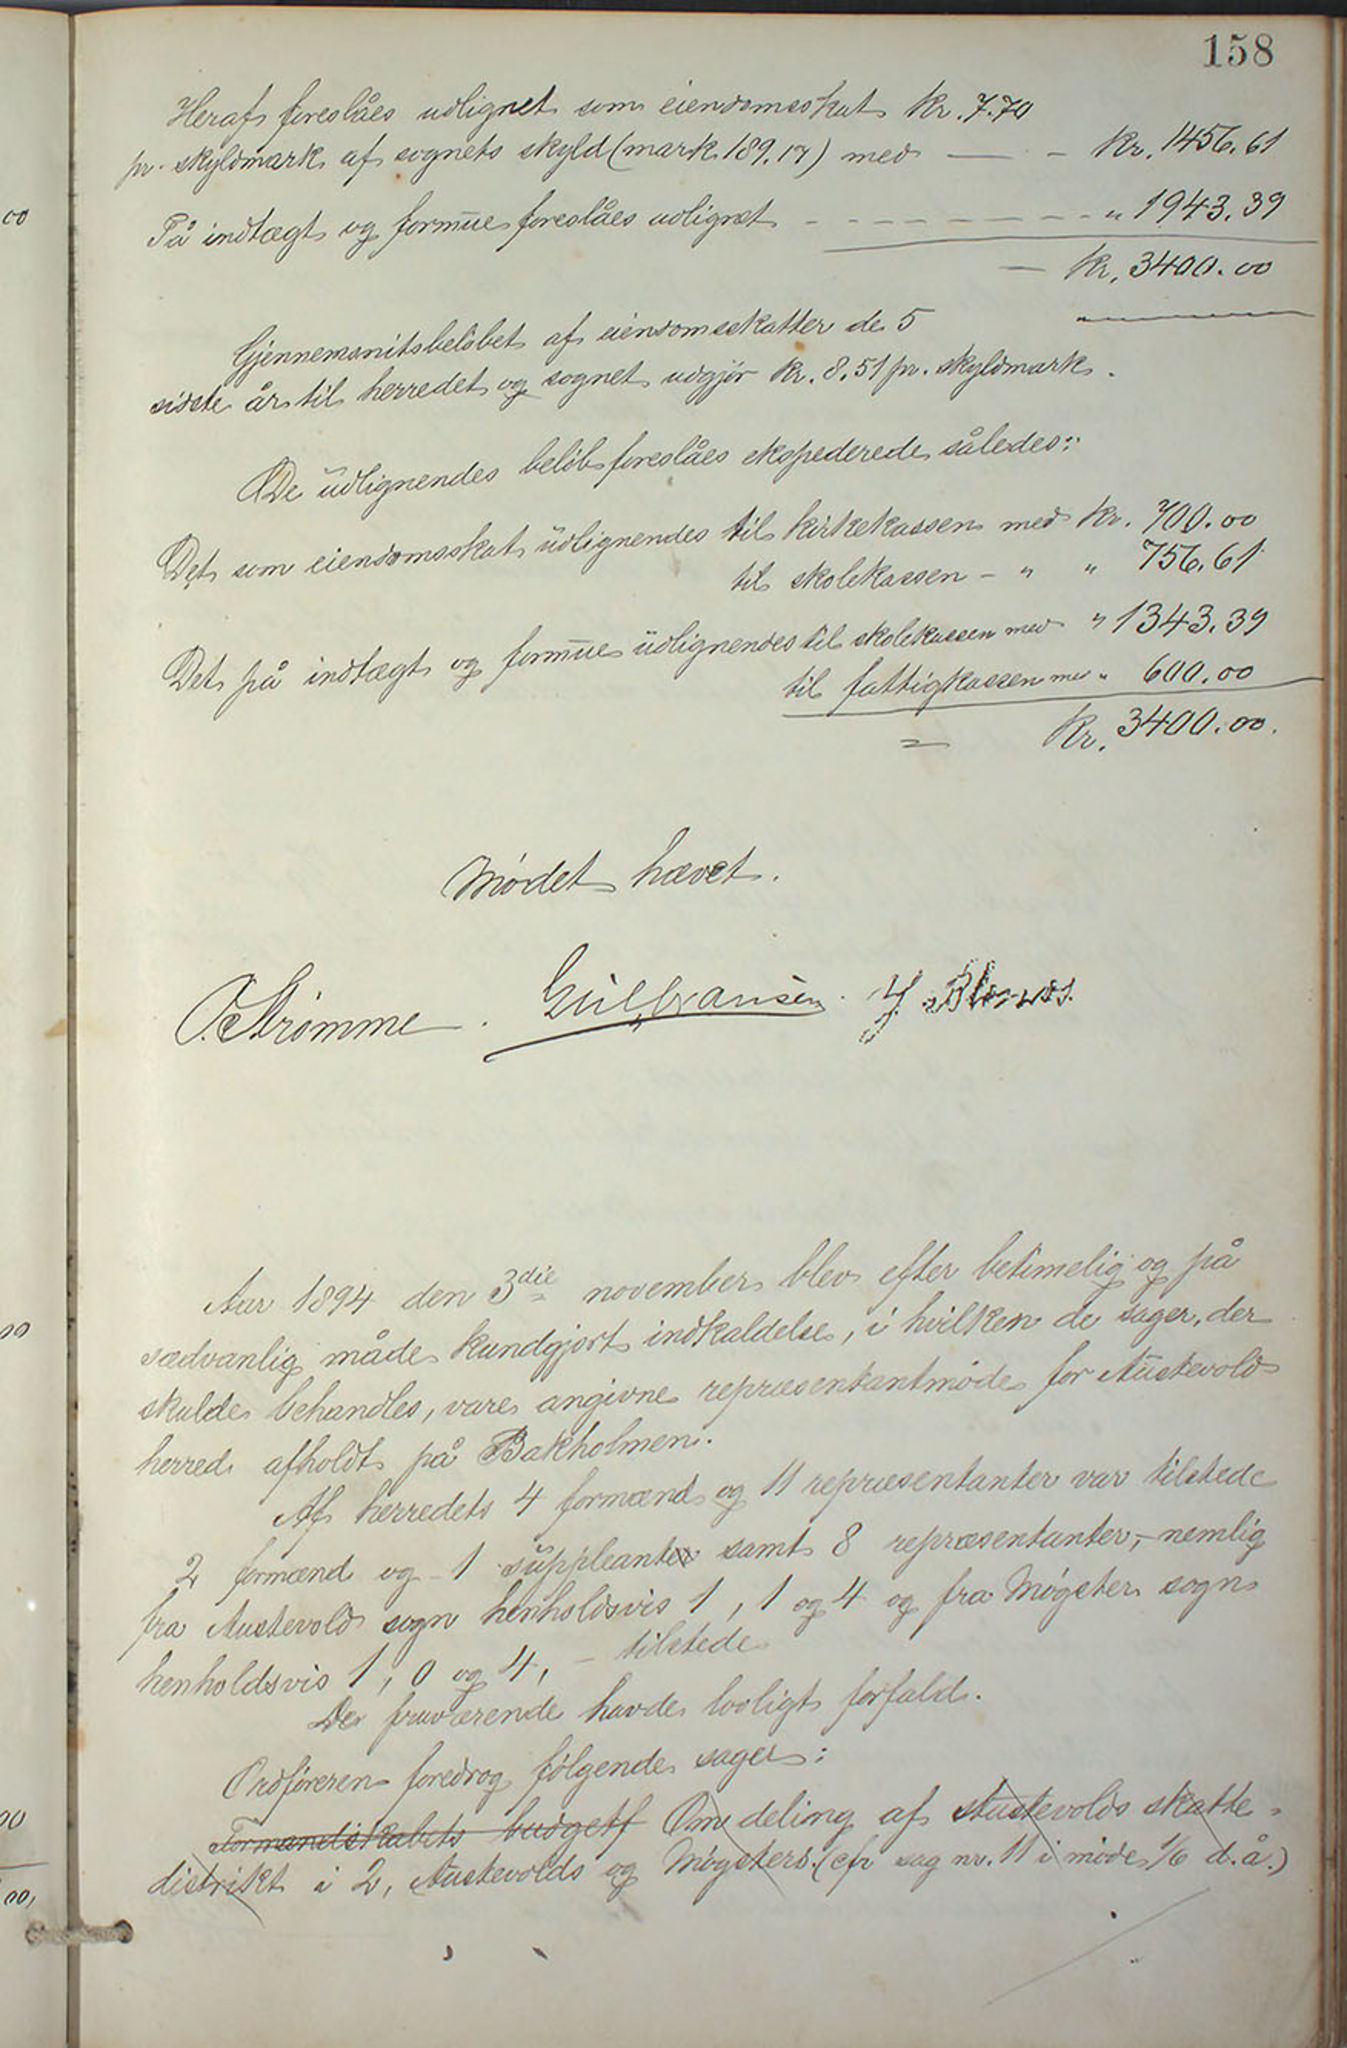 158
Heraf foreslåes udlignet som eiendomsskat kr. 7.70
pr. skyldmark af sognets skyld (mark 189.17) med — - kr. 1456.61
På indtægt og formue foreslåes udlignet - - - - - - - - " 1943.39
— kr. 3400.00
Gjennemsnitsbeløbet af eiendomsskatter de 5
sidste år til herredet og sognet udgjør kr. 8.51 pr. skyldmark.
De udlignendes beløb foreslåes expederede således:
Det som eiendomsskat udlignendes til kirkekassen med kr. 700.00
til skolekassen - " " 756.61
Det på indtægt og formue udlignendes til skolekassen med " 1343.39
til fattigkassen med " 600.00
= kr. 3400.00.
Mødet hævet.
O. Strømme. Gulbransen.
Aar 1894 den 3die november blev efter betimelig og på
sædvanlig måde kundgjort indkaldelse, i hvilken de sager, der
skulde behandles, vare angivne repræsentantmøde for Austevold
herred afholdt på Bakholmen.
Af herredets 4 formænd og 11 repræsentanter var tilstede
2 formænd og 1 suppleanter samt 8 repræsentanter, - nemlig
fra Austevold sogn henholdsvis 1, 1 og 4 og fra Møgster sogn
henholdsvis 1, 0 og 4, - tilstede
De fraværende havde lovligt forfald.
Ordføreren foredrog følgende sager:
Formandskabets budgett Om deling af Austevolds skatte-
distrikt i 2, Austevolds og Møgsters. (cfr sag nr. 11 i møde 1/6 d.å.)
00
00
00
00,